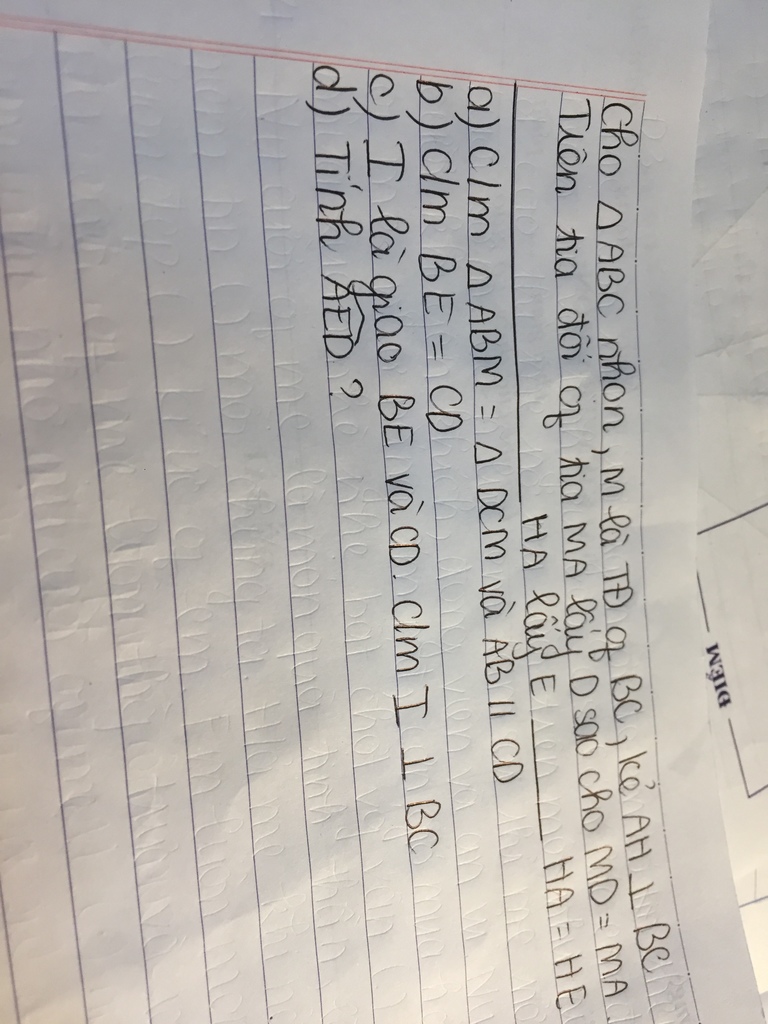 Cho △ABC nhọn, M là TĐ of BC, kẻ AH ⊥ BC
Trên tia đối of tia MA lấy D sao cho MD = MA.
________ HA lấy E ________ HA = HE
a) C/m △ABM = △DCM và AB // CD
b) C/m BE = CD
c) I là giao BE và CD. C/m I ⊥ BC
d) Tính AED ?
ĐIỂM